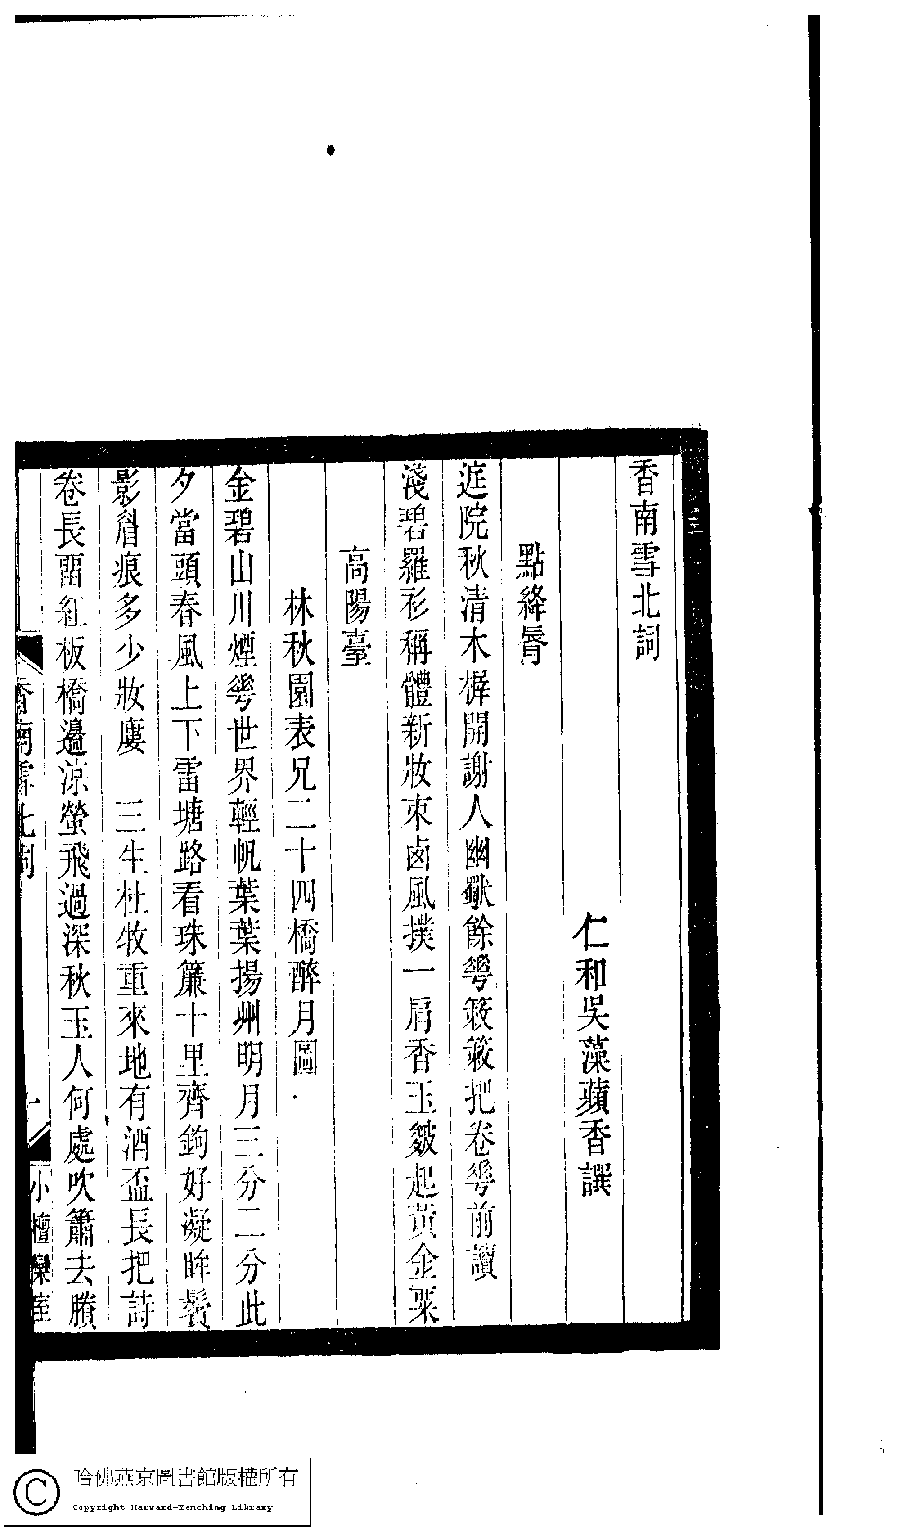 香南雪北詞
仁和吳藻蘋香譔
點絳脣
庭院秋清木樨開謝人幽獨餘蕚簌簌把卷蕚前讀
淺碧羅衫稱體新妝束鹵風撲一肩香玉皺起黃金粟
高陽臺
林秋園表兄二十四橋醉月圖
金碧山川煙蕚世界輕帆葉葉揚州明月三分二分此
夕當頭春風上下雷塘路看珠簾十里齊鉤好凝眸鬢
影眉痕多少妝廔　三生杜牧重來地有酒盃長把詩
卷長畱紅板橋邊涼螢飛過深秋玉人何處吹簫去賸
香南雪北詞
小檀欒室
哈佛燕京圖書館版權所有
Copyright Harvard-Yenching Library